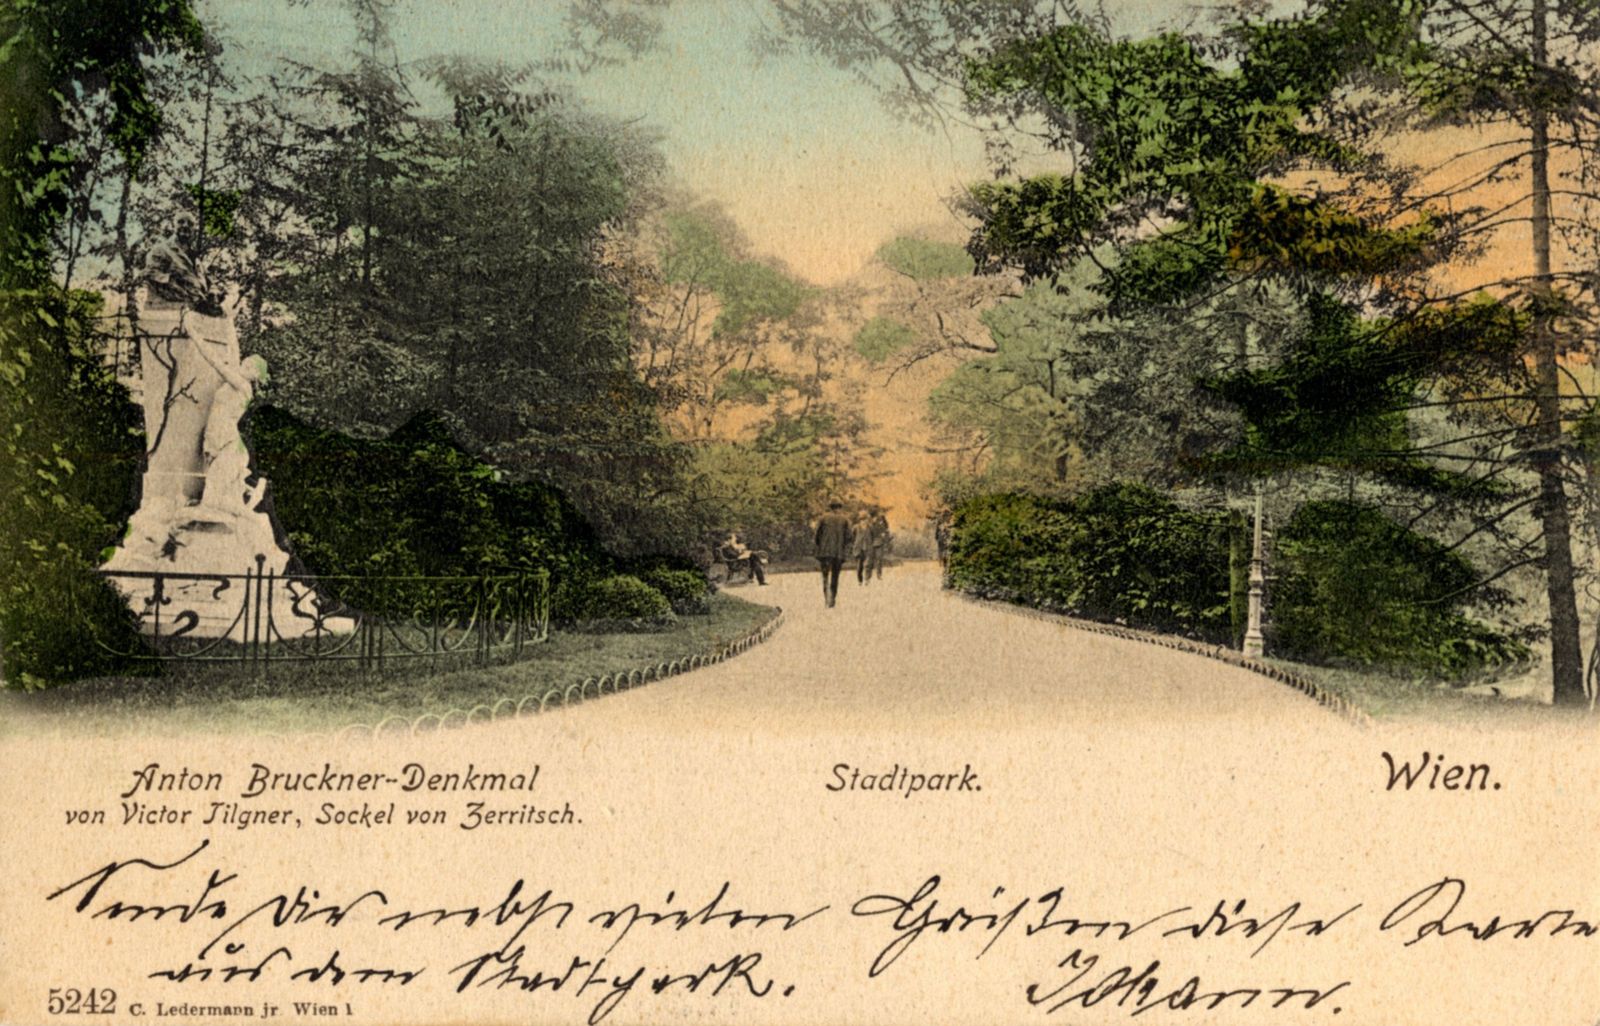 Anton Bruckner-Denkmal
von Victor Tilgner, Sockel von Zerritsch.
Stadtpark.
Wien.
Sende Dir nebst vielen Grüßen diese Karte
aus dem Stadtpark. Johann.
5242 C. Ledermann jr Wien I